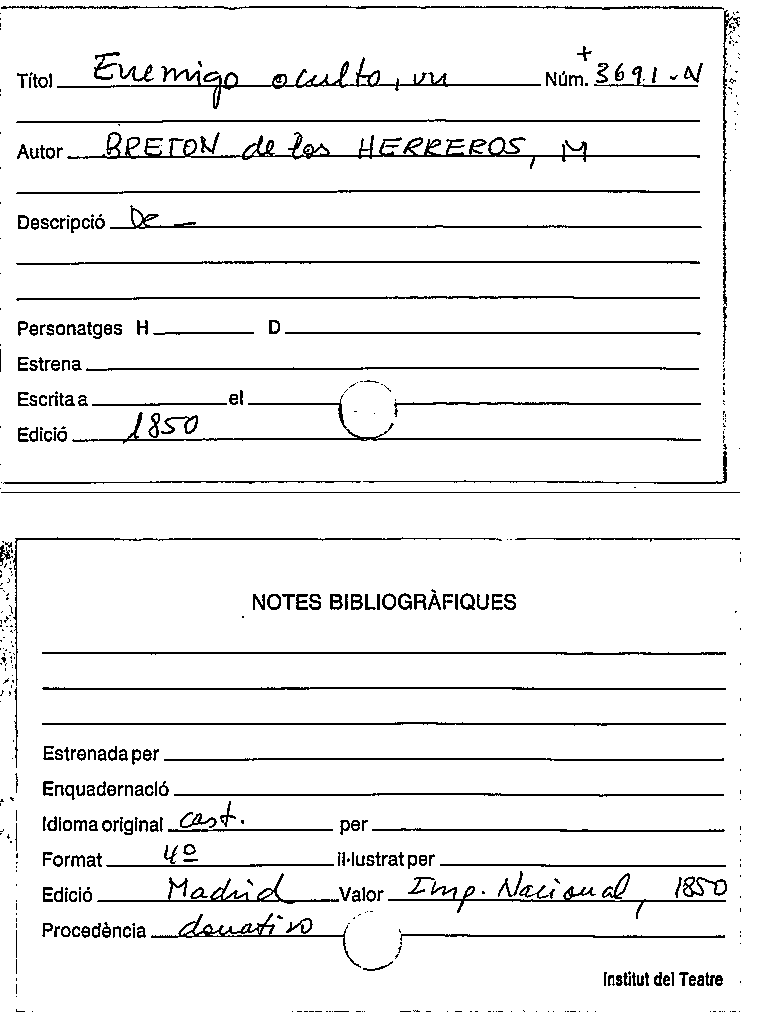 +
Títol Enemigo oculto, un Núm. 3691-N
Autor BRETON de los HERREROS, M
Descripció De —
Personatges H D
Estrena
Escrita a el
Edició 1850
NOTES BIBLIOGRÀFIQUES
Estrenada per
Enquadernació
Idioma original cast. per
Format 4º il·lustrat per
Edició Madrid Valor Imp. Nacional, 1850
Procedència donativo
Institut del Teatre